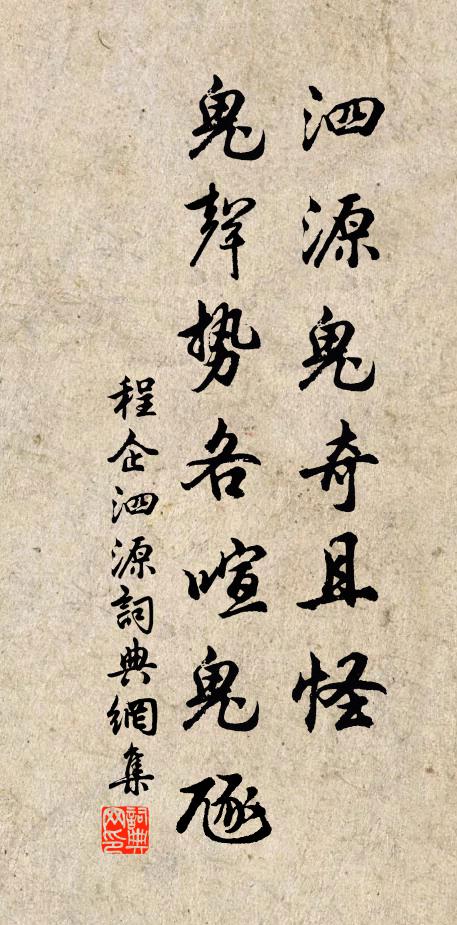 泗源鬼奇且怪
鬼聲势各喧鬼豗
程企泗源詞典網集
詞典
网印